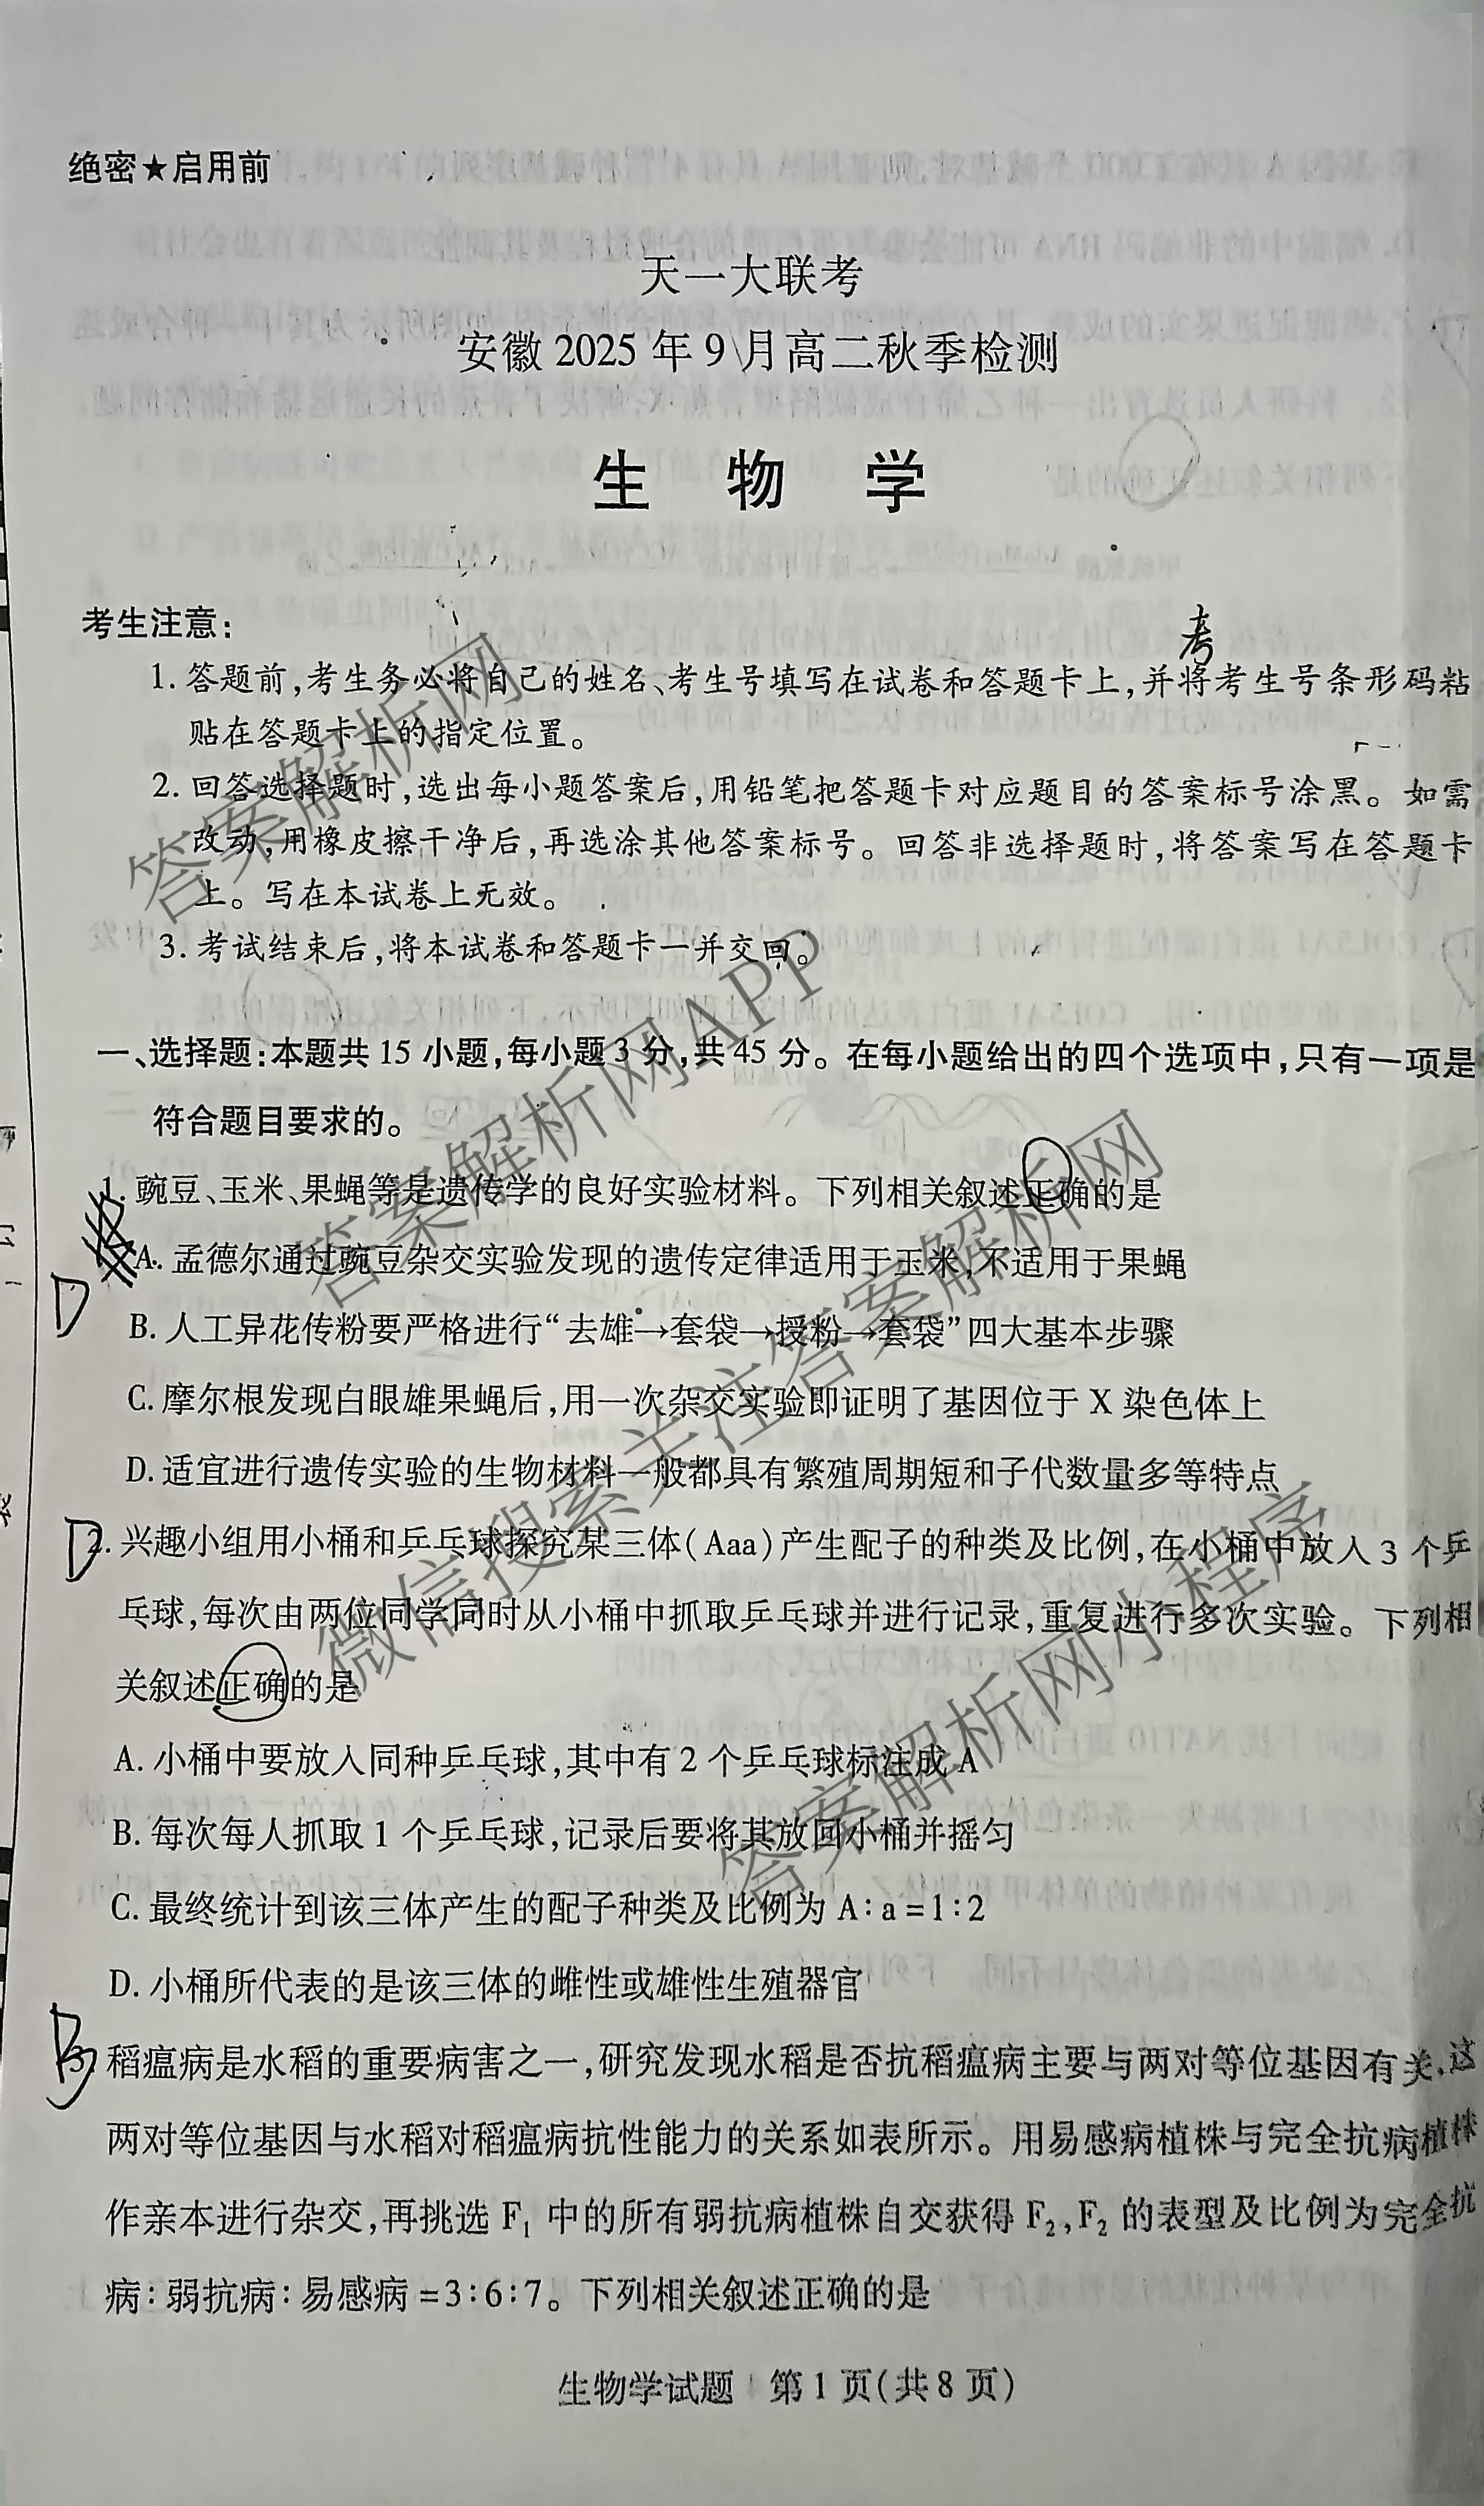 绝密★启用前
天一大联考
安徽 2025 年 9 月高二秋季检测
生 物 学
考生注意:
考
1. 答题前,考生务必将自己的姓名、考生号填写在试卷和答题卡上,并将考生号条形码粘
贴在答题卡上的指定位置。
2. 回答选择题时,选出每小题答案后,用铅笔把答题卡对应题目的答案标号涂黑。如需
改动,用橡皮擦干净后,再选涂其他答案标号。回答非选择题时,将答案写在答题卡
上。写在本试卷上无效。
3. 考试结束后,将本试卷和答题卡一并交回。
一、选择题:本题共 15 小题,每小题 3 分,共 45 分。在每小题给出的四个选项中,只有一项是
符合题目要求的。
1. 豌豆、玉米、果蝇等是遗传学的良好实验材料。下列相关叙述正确的是
A. 孟德尔通过豌豆杂交实验发现的遗传定律适用于玉米,不适用于果蝇
D
B. 人工异花传粉要严格进行“去雄→套袋→授粉→套袋”四大基本步骤
C. 摩尔根发现白眼雄果蝇后,用一次杂交实验即证明了基因位于 X 染色体上
D. 适宜进行遗传实验的生物材料一般都具有繁殖周期短和子代数量多等特点
D
2. 兴趣小组用小桶和乒乓球探究某三体(Aaa)产生配子的种类及比例,在小桶中放入 3 个乒
乓球,每次由两位同学同时从小桶中抓取乒乓球并进行记录,重复进行多次实验。下列相
关叙述正确的是
A. 小桶中要放入同种乒乓球,其中有 2 个乒乓球标注成 A
B. 每次每人抓取 1 个乒乓球,记录后要将其放回小桶并摇匀
C. 最终统计到该三体产生的配子种类及比例为 A:a=1:2
D. 小桶所代表的是该三体的雌性或雄性生殖器官
3. 稻瘟病是水稻的重要病害之一,研究发现水稻是否抗稻瘟病主要与两对等位基因有关,这
两对等位基因与水稻对稻瘟病抗性能力的关系如表所示。用易感病植株与完全抗病植株
作亲本进行杂交,再挑选 F₁ 中的所有弱抗病植株自交获得 F₂,F₂ 的表型及比例为完全抗
病:弱抗病:易感病=3:6:7。下列相关叙述正确的是
生物学试题 第 1 页(共 8 页)
答案解析网
答案解析网APP
微信搜索关注答案解析网
答案解析网小程序